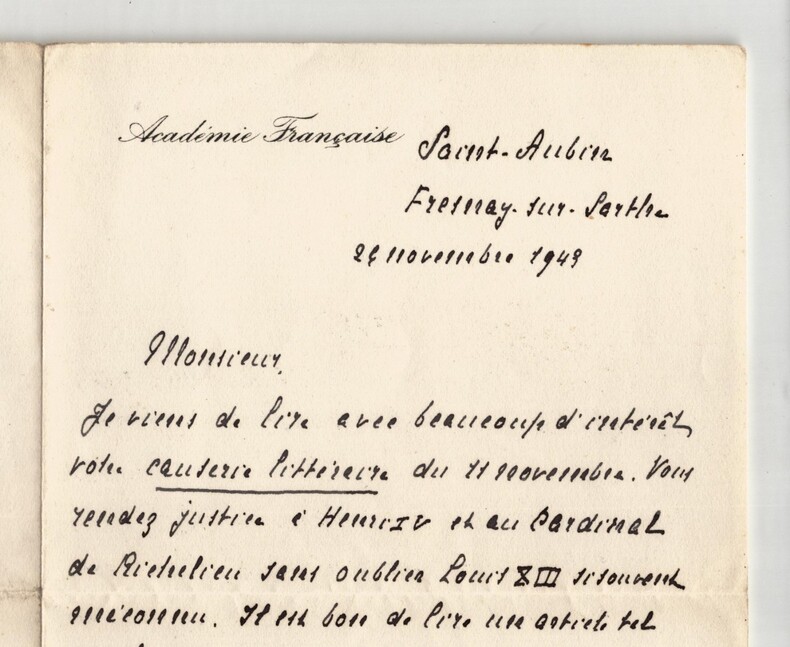 Académie Française
Saint-Aubin
Fresnay-sur-Sarthe
novembre 1943
Monsieur,
Je viens de lire avec beaucoup d'intérêt
votre causerie littéraire du 11 novembre. Vous
rendez justice à Henri IV et au Cardinal
de Richelieu sans oublier Louis XIII si souvent
méconnu. Il est bon de lire un article tel